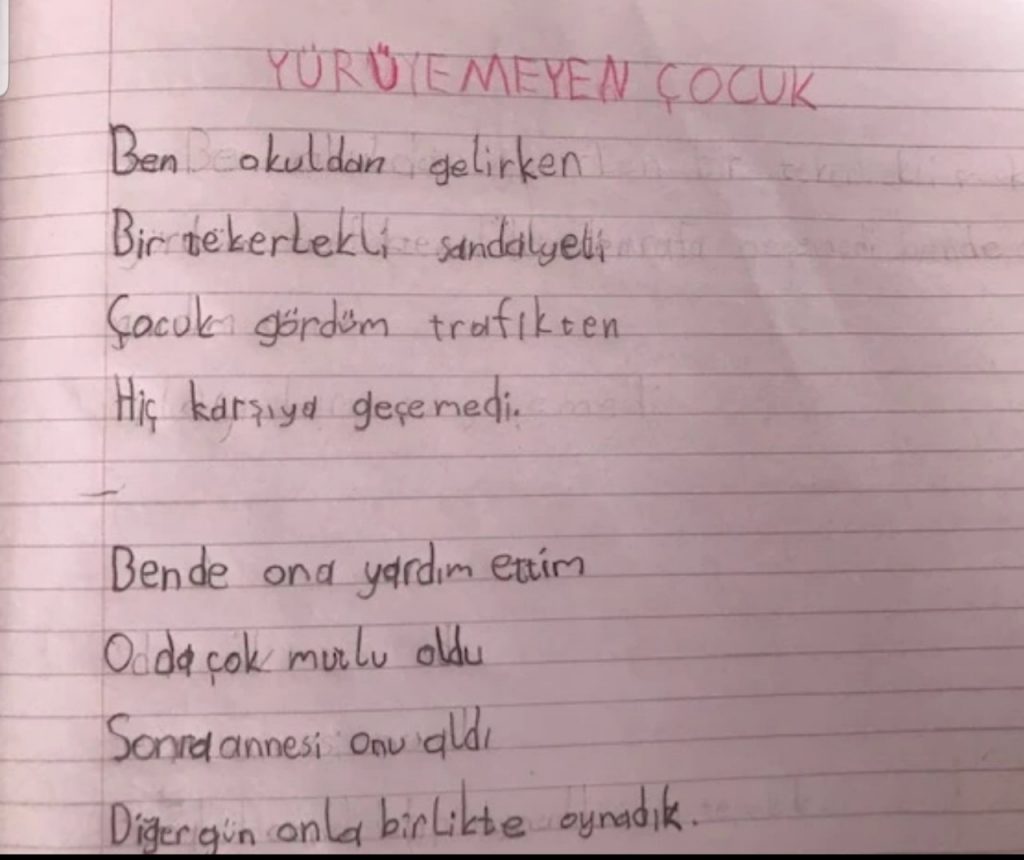 YÜRÜYEMEYEN ÇOCUK
Ben okuldan gelirken
Bir tekertekli sandalyeli
Çocuk gördüm trafikten
Hiç karşıya geçemedi.
Bende ona yardım ettim
Oda çok mutlu oldu
Sonra annesi onu aldı
Diğer gün onla birlikte oynadık.